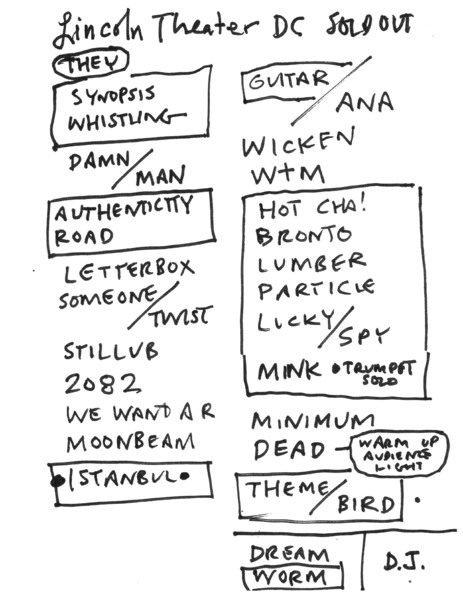 Lincoln Theater DC SOLD OUT
THEY
SYNOPSIS
WHISTLING
DAMN/
MAN
AUTHENTICITY
ROAD
LETTERBOX
SOMEONE/
TWIST
STILLUB
2082
WE WANT A R
MOONBEAM
•ISTANBUL•
GUITAR/
ANA
WICKEN
W+M
HOT CHA!
BRONTO
LUMBER
PARTICLE
LUCKY/
SPY
MINK •TRUMPET
SOLO
MINIMUM
DEAD - WARM UP
AUDIENCE
LIGHT
THEME/
BIRD
DREAM
WORM
D.J.